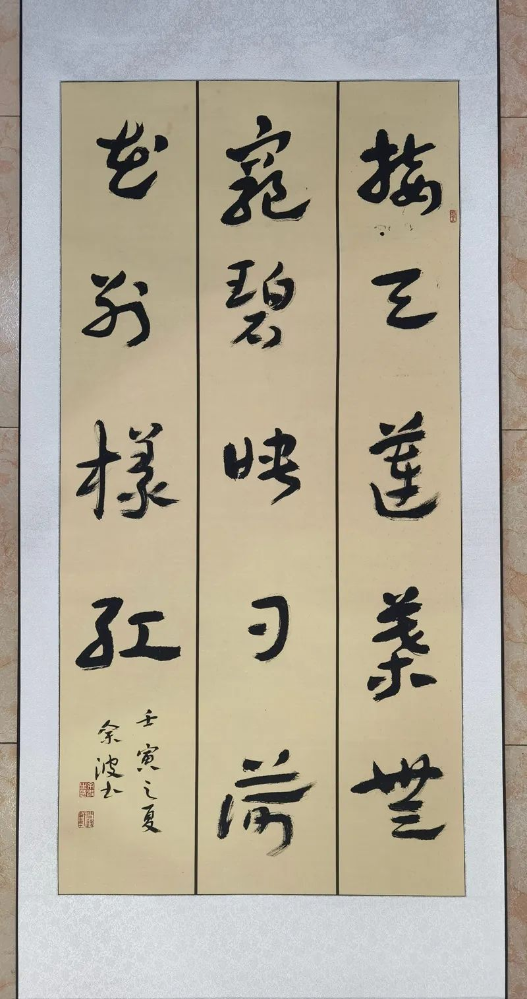 接天莲葉無
窮碧映日荷
花别樣紅
壬寅之夏
余波书